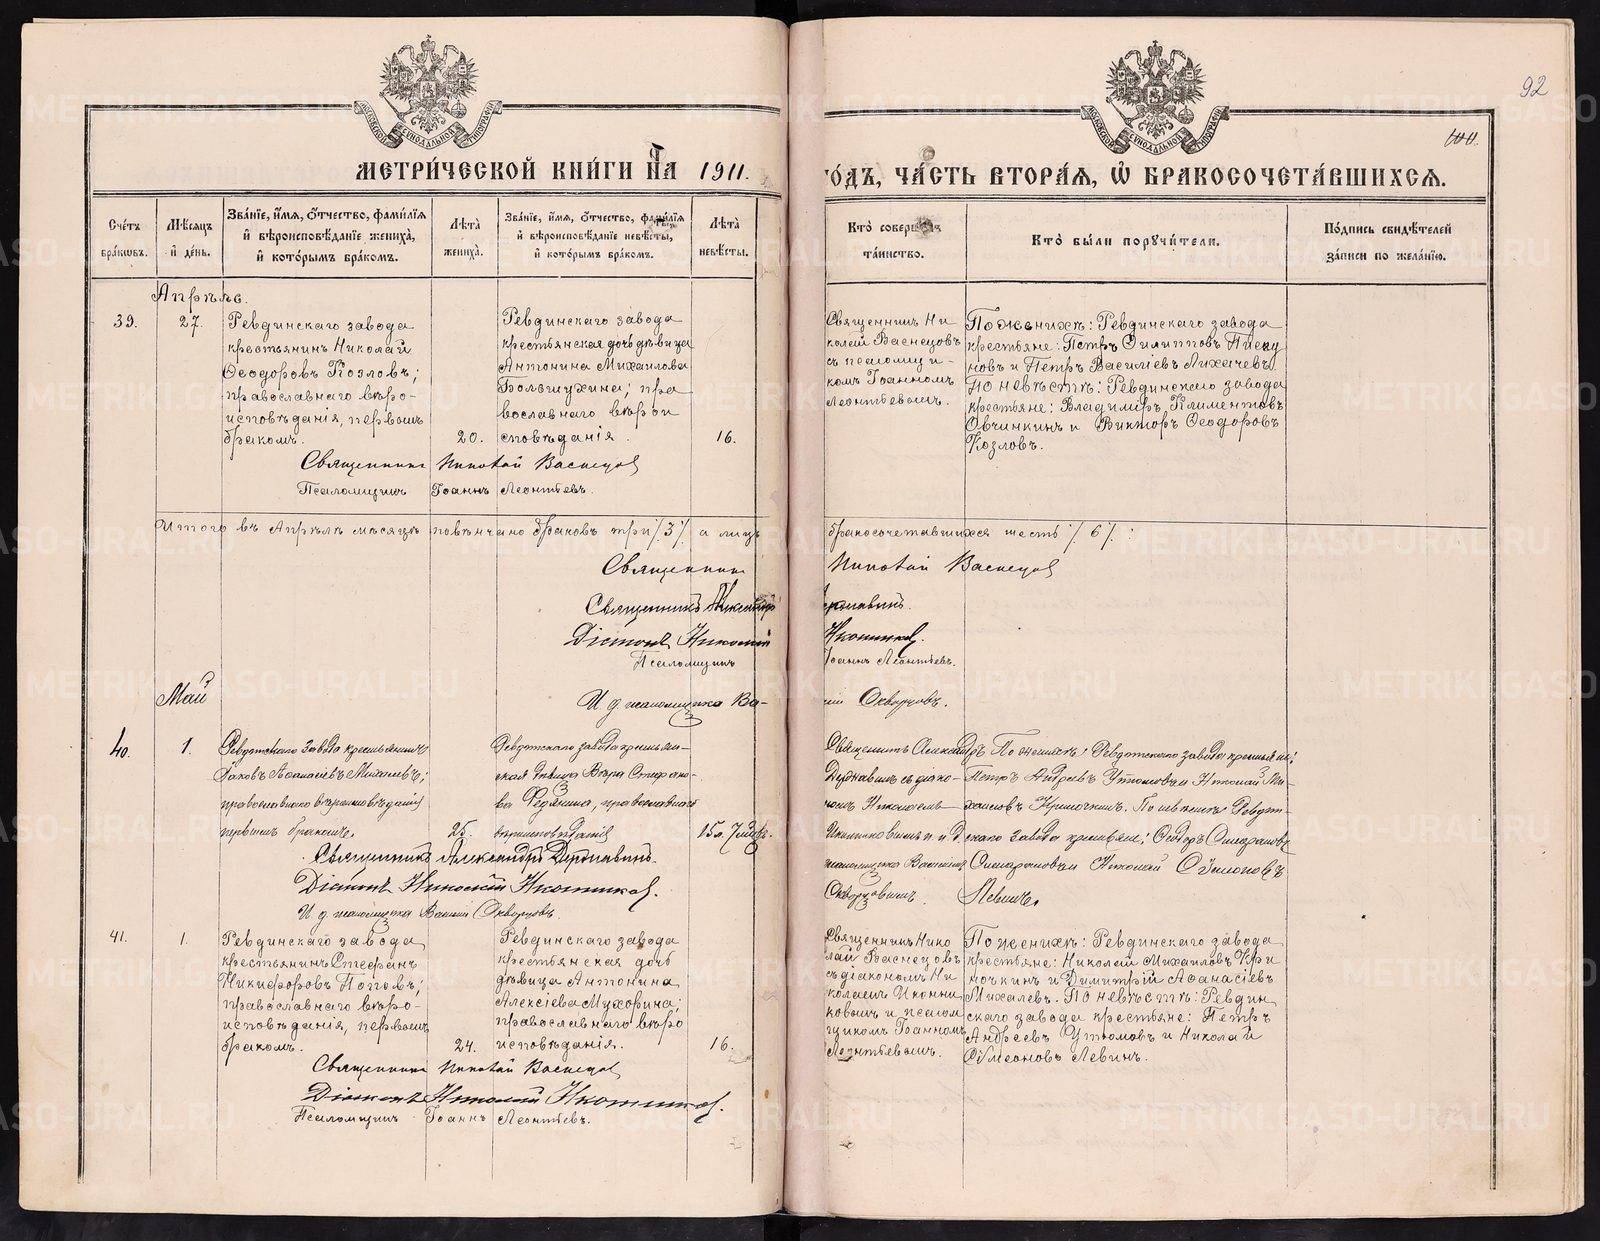 92
100.
МЕТРИ́ЧЕСКОЙ КНИ́ГИ НА 1911.
ГО́ДЪ, ЧА́СТЬ ВТОРА́Я, Ѡ БРАКОСОЧЕТА́ВШИХСЯ.
Сче́тъ бра́кѡвъ.
Мѣ́сяцъ и́ де́нь.
Зва́нїе, и́мя, ѻ҆́тчество, фами́лїя и́ вѣроисповѣ́данїе жениха̀, и́ кото́рымъ бра́комъ.
Лѣ́та жениха̀.
Зва́нїе, и́мя, ѻ҆́тчество, фами́лїя и́ вѣроисповѣ́данїе невѣ́сты, и́ кото́рымъ бра́комъ.
Лѣ́та невѣ́сты.
Кто̀ соверша́лъ та́инство.
Кто̀ бы́ли поручи́тели.
По́дпись свидѣ́телей за́писи по жела́нїю.
Апрѣль.
39.
27.
Ревдинскаго завода
крестьянинъ Николай
Ѳеодоровъ Козловъ;
православнаго вѣро-
исповѣданія, первымъ
бракомъ.
20.
Ревдинскаго завода
крестьянская дочь дѣвица
Антонина Михайлова
православнаго вѣрои
сповѣданія.
16.
Священникъ Ни
колай Васнецовъ
съ псаломщи-
комъ Іоанномъ
Леонтьевымъ.
По женихѣ: Ревдинскаго завода
крестьяне: Петръ Филипповъ Писку
новъ и Петръ Васильевъ Лихачевъ.
По невѣстѣ: Ревдинскаго завода
крестьяне: Владиміръ Климентовъ
Овчинкинъ и Викторъ Ѳеодоровъ
Козловъ.
Священникъ Николай Васнецовъ
Псаломщикъ Іоаннъ Леонтьевъ.
Итого въ Апрѣлѣ мѣсяцѣ повѣнчано браковъ три /3/ а лицъ бракосочетавшихся шесть /6/.
Священникъ Николай Васнецовъ
Священникъ Александръ Державинъ.
Діаконъ Николай Иконниковъ.
Псаломщикъ Іоаннъ Леонтьевъ.
И д псаломщика Ва-
силій Скворцовъ.
Май
40.
1.
Ревдинскаго завода крестьянинъ
Іаковъ Аѳанасіевъ Михалевъ;
православнаго вѣроисповѣданія
первымъ бракомъ.
25.
Ревдинскаго завода крестьян-
ская дѣвица Вѣра Стефано-
ва Федянина, православнаго
вѣроисповѣданія
Священникъ Александръ
Державинъ съ діако-
номъ Николаемъ
Иконниковымъ и и.д.
псаломщика Василіемъ
Скворцовымъ.
По женихѣ: Ревдинскаго завода крестьяне:
Петръ Андреевъ Утюмовъ и Николай Ми-
хаиловъ Криночкинъ. По невѣстѣ: Ревдин-
скаго завода крестьяне: Ѳедоръ
и Николай Сумеоновъ
Левинъ.
Священникъ Александръ Державинъ.
Діаконъ Николай Иконниковъ.
И д псаломщика Василій Скворцовъ.
41.
1.
Ревдинскаго завода
крестьянинъ Стефанъ
Никифоровъ Поповъ;
православнаго вѣро-
исповѣданія, первымъ
бракомъ.
24.
Ревдинскаго завода
крестьянская дочь
дѣвица Антонина
Алексіева Мухорина;
православнаго вѣро
исповѣданія.
16.
Священникъ Нико
лай Васнецовъ
съ діакономъ Ни
колаемъ Иконни
ковымъ и псалом
щикомъ Іоанномъ
Леонтьевымъ.
По женихѣ: Ревдинскаго завода
крестьяне: Николай Михаиловъ Кри
ночкинъ и Димитрій Аѳанасіевъ
Михалевъ. По невѣстѣ: Ревдин
скаго завода крестьяне: Петръ
Андреевъ Утюмовъ и Николай
Сѵмеоновъ Левинъ.
Священникъ Николай Васнецовъ
Діаконъ Николай Иконниковъ.
Псаломщикъ Іоаннъ Леонтьевъ.
METRIKI.GASO-URAL.RU